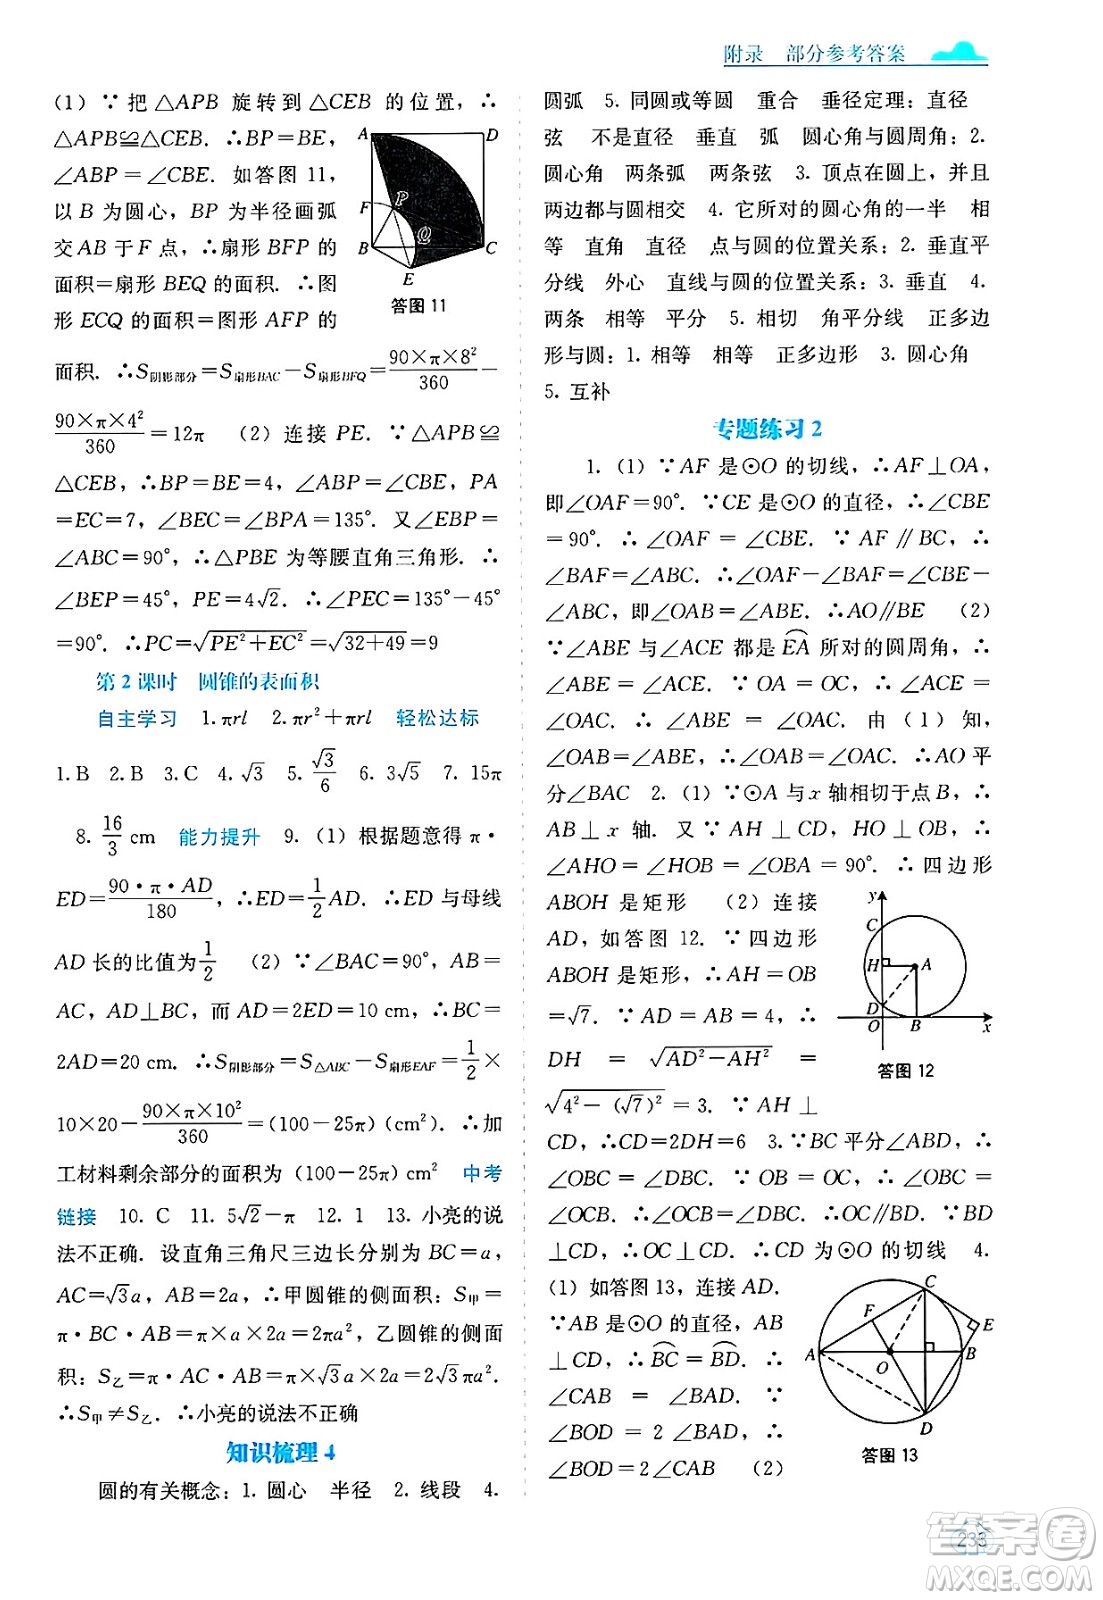 附录 部分参考答案
(1) ∵ 把 △APB 旋转到 △CEB 的位置, ∴
△APB≌△CEB. ∴BP=BE,
∠ABP=∠CBE. 如答图 11,
以 B 为圆心, BP 为半径画弧
交 AB 于 F 点, ∴扇形 BFP 的
面积=扇形 BEQ 的面积. ∴图
形 ECQ 的面积=图形 AFP 的
A D F P B Q C E
答图 11
面积. ∴S阴影部分=S扇形BAC−S扇形BFQ=90×π×8²/360−
90×π×4²/360=12π (2) 连接 PE. ∵△APB≌
△CEB, ∴BP=BE=4, ∠ABP=∠CBE, PA
=EC=7, ∠BEC=∠BPA=135°. 又∠EBP=
∠ABC=90°, ∴△PBE 为等腰直角三角形. ∴
∠BEP=45°, PE=4√2. ∴∠PEC=135°−45°
=90°. ∴PC=√(PE²+EC²)=√(32+49)=9
第 2 课时 圆锥的表面积
自主学习 1. πrl 2. πr²+πrl 轻松达标
1. B 2. B 3. C 4. √3 5. √3/6 6. 3√5 7. 15π
8. 16/3 cm 能力提升 9. (1) 根据题意得 π·
ED=90·π·AD/180, ∴ED=1/2AD. ∴ED 与母线
AD 长的比值为1/2 (2) ∵∠BAC=90°, AB=
AC, AD⊥BC, 而 AD=2ED=10 cm, ∴BC=
2AD=20 cm. ∴S阴影部分=S△ABC−S扇形EAF=1/2×
10×20−90×π×10²/360=(100−25π)(cm²). ∴加
工材料剩余部分的面积为 (100−25π) cm² 中考
链接 10. C 11. 5√2−π 12. 1 13. 小亮的说
法不正确. 设直角三角尺三边长分别为 BC=a,
AC=√3a, AB=2a, ∴甲圆锥的侧面积: S甲=
π·BC·AB=π×a×2a=2πa², 乙圆锥的侧面
积: S乙=π·AC·AB=π×√3a×2a=2√3πa².
∴S甲≠S乙. ∴小亮的说法不正确
知识梳理 4
圆的有关概念: 1. 圆心 半径 2. 线段 4.
圆弧 5. 同圆或等圆 重合 垂径定理: 直径
弦 不是直径 垂直 弧 圆心角与圆周角: 2.
圆心角 两条弧 两条弦 3. 顶点在圆上, 并且
两边都与圆相交 4. 它所对的圆心角的一半 相
等 直角 直径 点与圆的位置关系: 2. 垂直平
分线 外心 直线与圆的位置关系: 3. 垂直 4.
两条 相等 平分 5. 相切 角平分线 正多边
形与圆: 1. 相等 相等 正多边形 3. 圆心角
5. 互补
专题练习 2
1. (1) ∵AF 是⊙O 的切线, ∴AF⊥OA,
即∠OAF=90°. ∵CE 是⊙O 的直径, ∴∠CBE
=90°. ∴∠OAF=∠CBE. ∵AF∥BC, ∴
∠BAF=∠ABC. ∴∠OAF−∠BAF=∠CBE−
∠ABC, 即∠OAB=∠ABE. ∴AO∥BE (2)
∵∠ABE 与∠ACE 都是 EA⌒ 所对的圆周角, ∴
∠ABE=∠ACE. ∵OA=OC, ∴∠ACE=
∠OAC. ∴∠ABE=∠OAC. 由 (1) 知,
∠OAB=∠ABE, ∴∠OAB=∠OAC. ∴AO 平
分∠BAC 2. (1) ∵⊙A 与 x 轴相切于点 B, ∴
AB⊥x 轴. 又∵AH⊥CD, HO⊥OB, ∴
∠AHO=∠HOB=∠OBA=90°. ∴四边形
ABOH 是矩形 (2) 连接
AD, 如答图 12. ∵四边形
ABOH 是矩形, ∴AH=OB
=√7. ∵AD=AB=4, ∴
DH = √(AD²−AH²) =
√(4²−(√7)²)=3. ∵AH⊥
y C H A D O B x
答图 12
CD, ∴CD=2DH=6 3. ∵BC 平分∠ABD, ∴
∠OBC=∠DBC. ∵OB=OC, ∴∠OBC=
∠OCB. ∴∠OCB=∠DBC. ∴OC∥BD. ∵BD
⊥CD, ∴OC⊥CD. ∴CD 为⊙O 的切线 4.
(1) 如答图 13, 连接 AD.
∵AB 是⊙O 的直径, AB
⊥CD, ∴BC⌒=BD⌒. ∴
∠CAB = ∠BAD. ∵
∠BOD = 2∠BAD, ∴
∠BOD=2∠CAB (2)
C F E A O B D
答图 13
233
答案卷
MXQE.COM